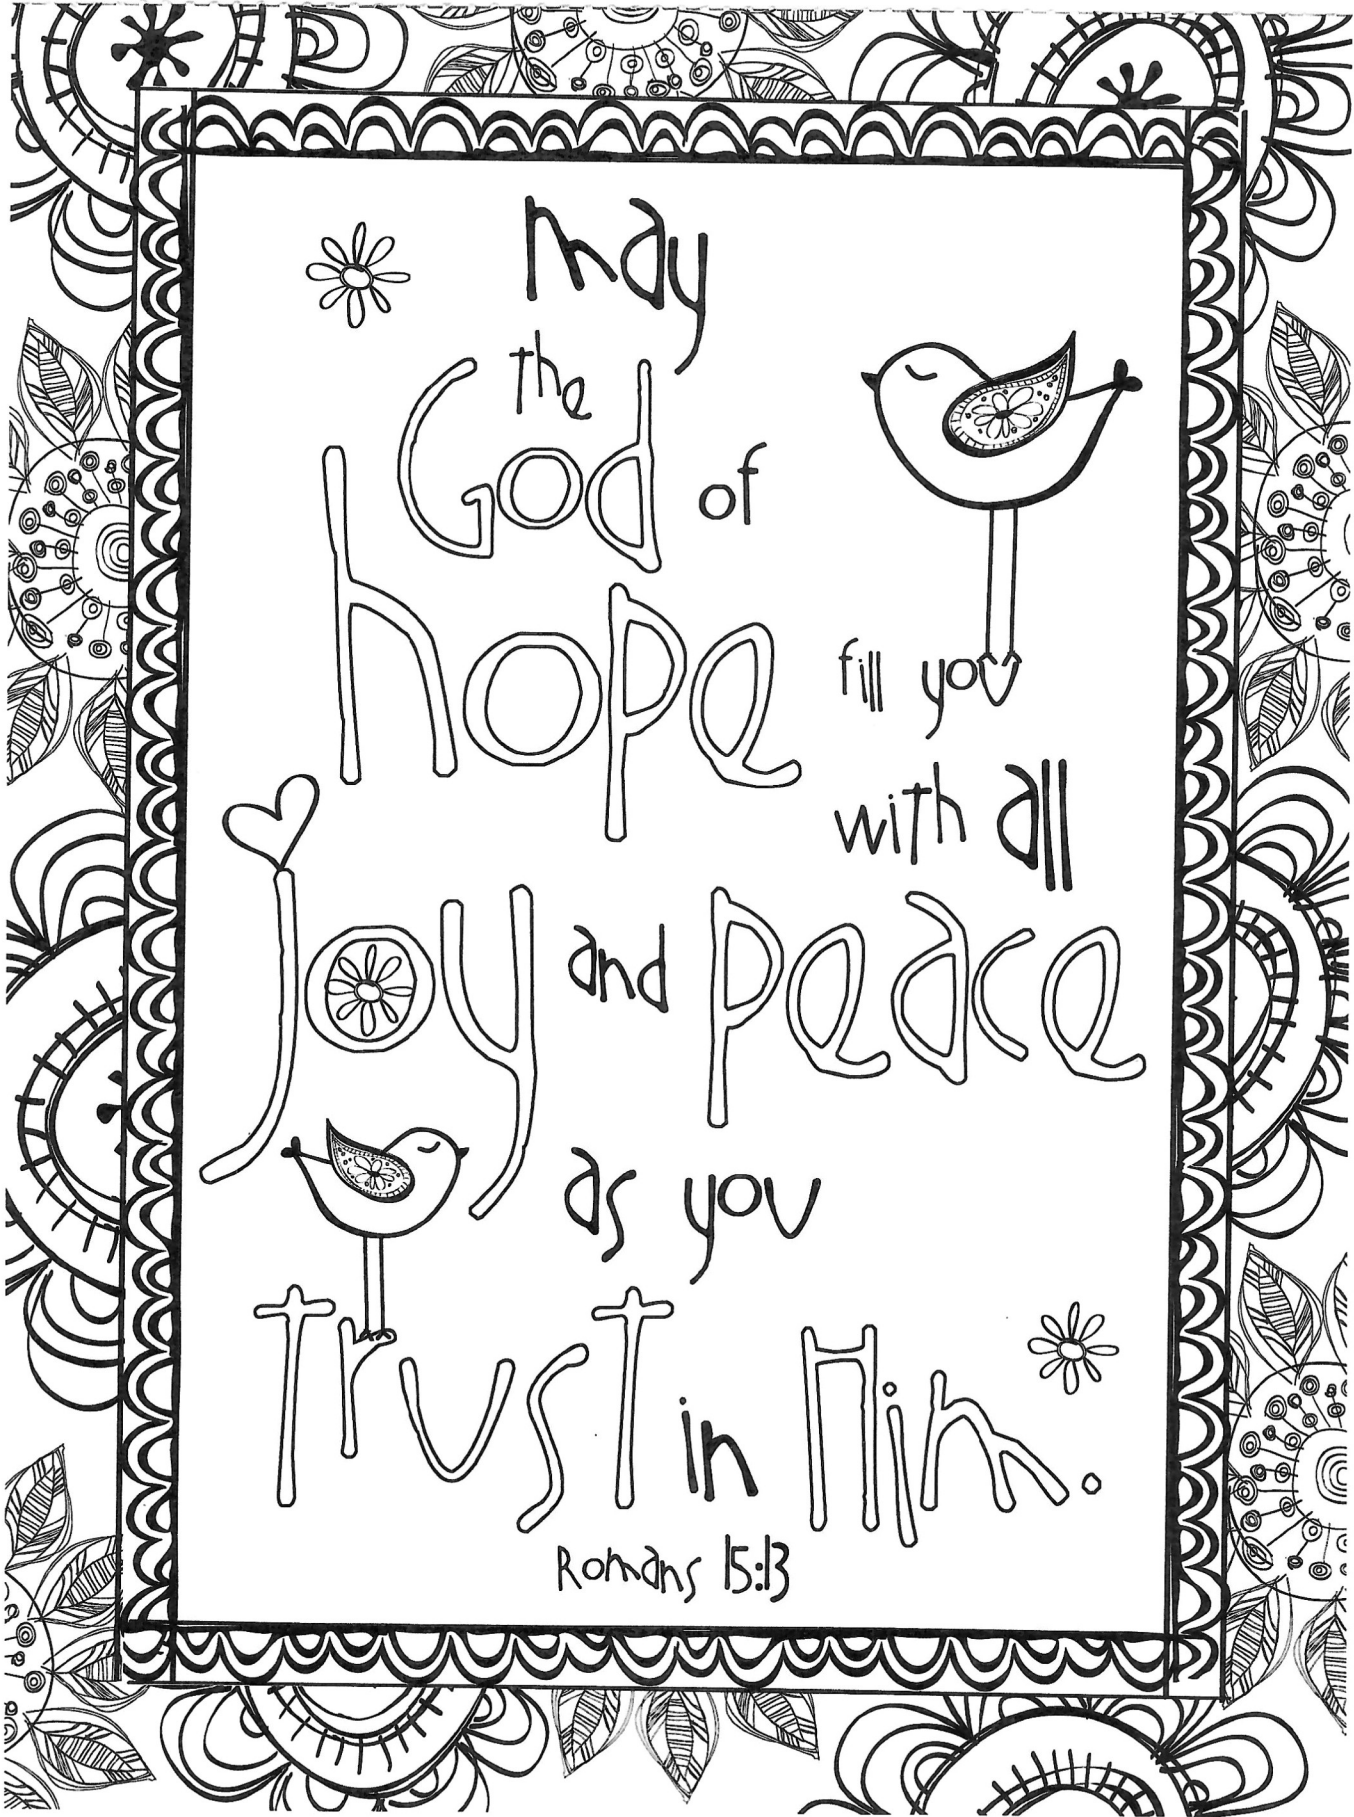 May
the
God of
hope fill you
with all
Joy and peace
as you
Trust in Him.
Romans 15:13